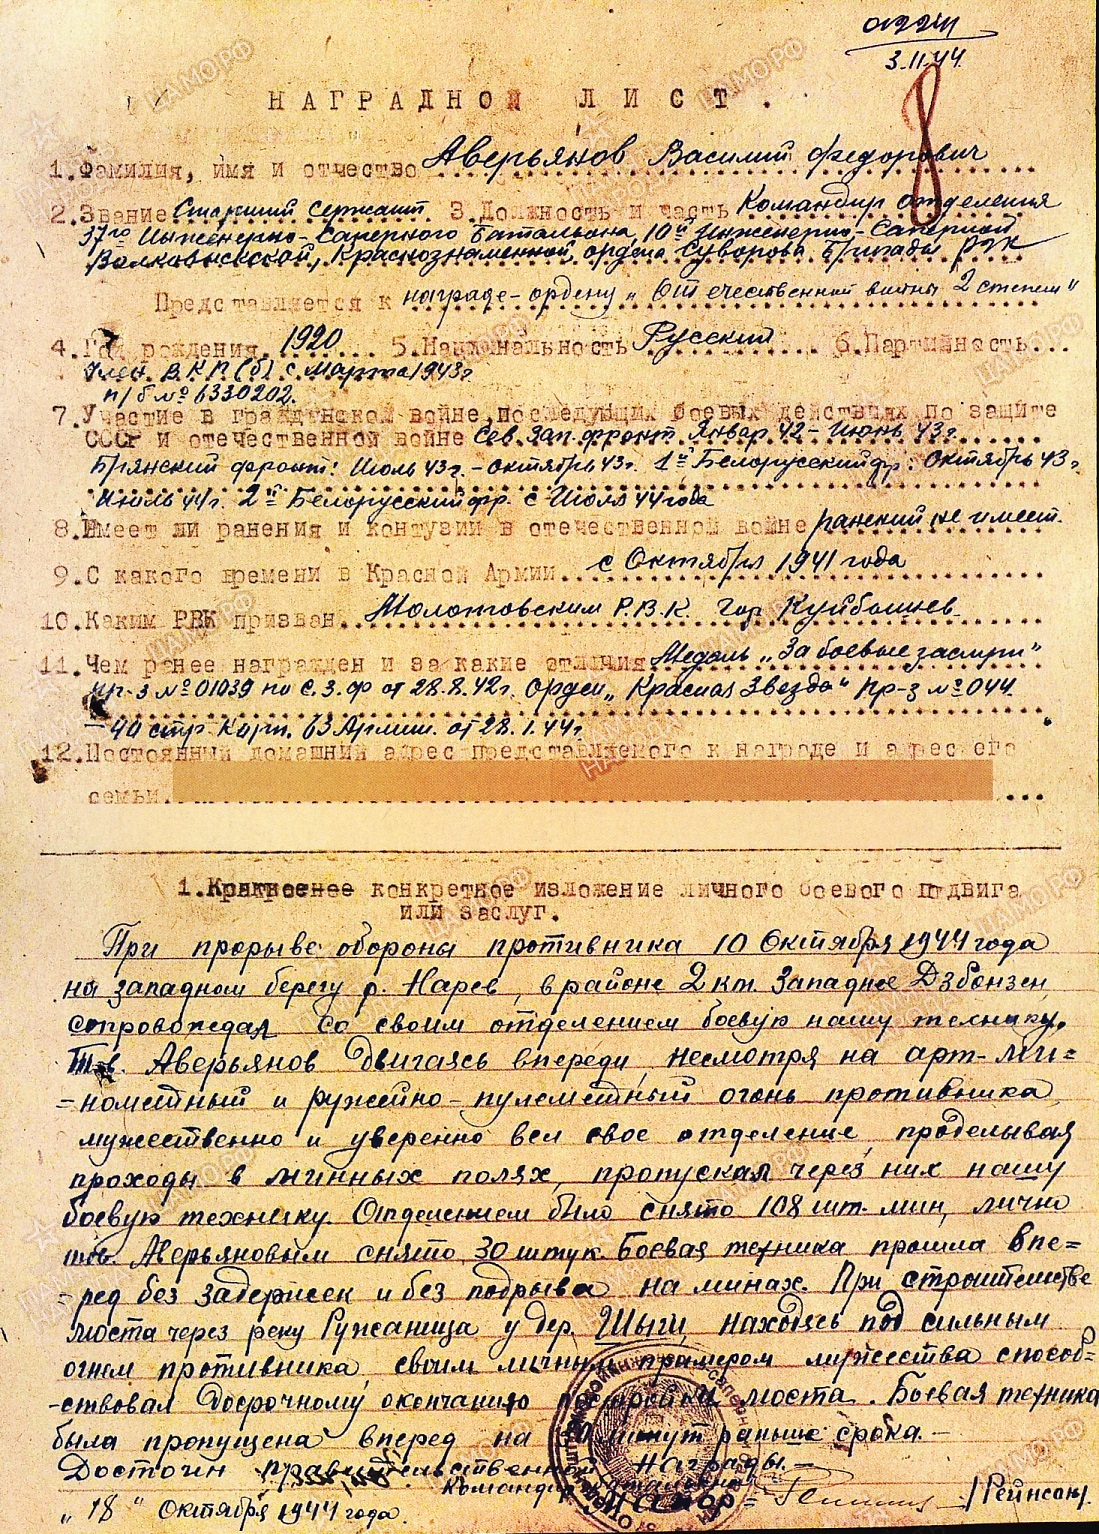 3.11.44
8
НАГРАДНОЙ ЛИСТ.
1. Фамилия, имя и отчество Аверьянов Василий Федорович
2. Звание Старший сержант. 3. Должность и часть Командир отделения
37го Инженерно-Саперного Батальона, 10й Инженерно-Саперной
Волковысской, Краснознаменной, ордена Суворова Бригады РГК
Представляется к награде-ордену „Отечественной войны 2 степени"
4. Год рождения 1920 5. Национальность Русский 6. Партийность
Член В.К.П(б) с Марта 1943г
п/б № 6330202.
7. Участие в гражданской войне, последующих боевых действиях по защите
СССР и отечественной войне Сев. Зап. фронт Январ 42 - Июнь 43г.
Брянский фронт: Июль 43г. - октябрь 43г. 1й Белорусский фр: Октябрь 43г
Июль 44г. 2й Белорусский фр. с Июля 44 года
8. Имеет ли ранения и контузии в отечественной войне ранений не имеет.
9. С какого времени в Красной Армии с Октября 1941 года
10. Каким РВК призван Молотовским Р.В.К. Гор Куйбышев
11. Чем ранее награжден и за какие отличия Медаль „За боевые заслуги"
Пр-з № 01039 по С.З.Ф от 28.8.42г. Орден „Красная Звезда" Пр-з № 044
- 40 стр. Корп. 63 Армии. от 28.1.44г.
12. Постоянный домашний адрес представляемого к награде и адрес его
семьи
1. Краткое конкретное изложение личного боевого подвига
или заслуг.
При прорыве обороны противника 10 Октября 1944 года
на западном берегу р. Нарев, в районе 2 км Западнее Дзбэнзен
сопровождая со своим отделением боевую нашу технику.
Тов. Аверьянов двигаясь впереди, несмотря на арт-ми=
=нометный и ружейно-пулеметный огонь противника,
мужественно и уверенно вел свое отделение, проделывая
проходы в минных полях, пропуская через них нашу
боевую технику. Отделением было снято 108 шт. мин, лично
тов. Аверьяновым снято 30 штук. Боевая техника прошла впе=
=ред без задержек и без подрыва на минах. При строительстве
моста через реку Ружаница у дер. Шыги, находясь под сильным
огнем противника, своим личным примером мужества способ-
-ствовал досрочному окончанию постройки моста. Боевая техника
была пропущена вперед на минут раньше срока. -
Достоин правительственной награды. -
Командир батальона
Майор = /Рейнсон/.
„18" Октября 1944 года.